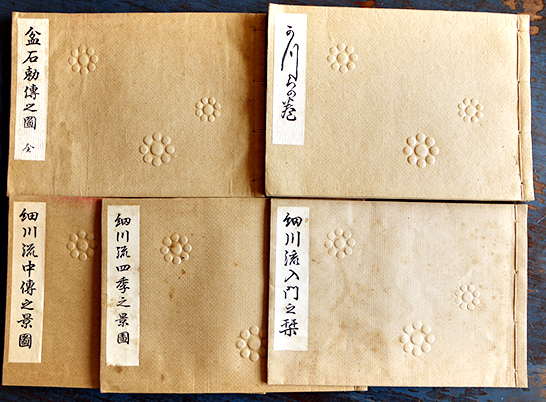 盆石勅傳之圖 全
の巻
細川流中傳之景圖
細川流四季之景圖
細川流入門之栞